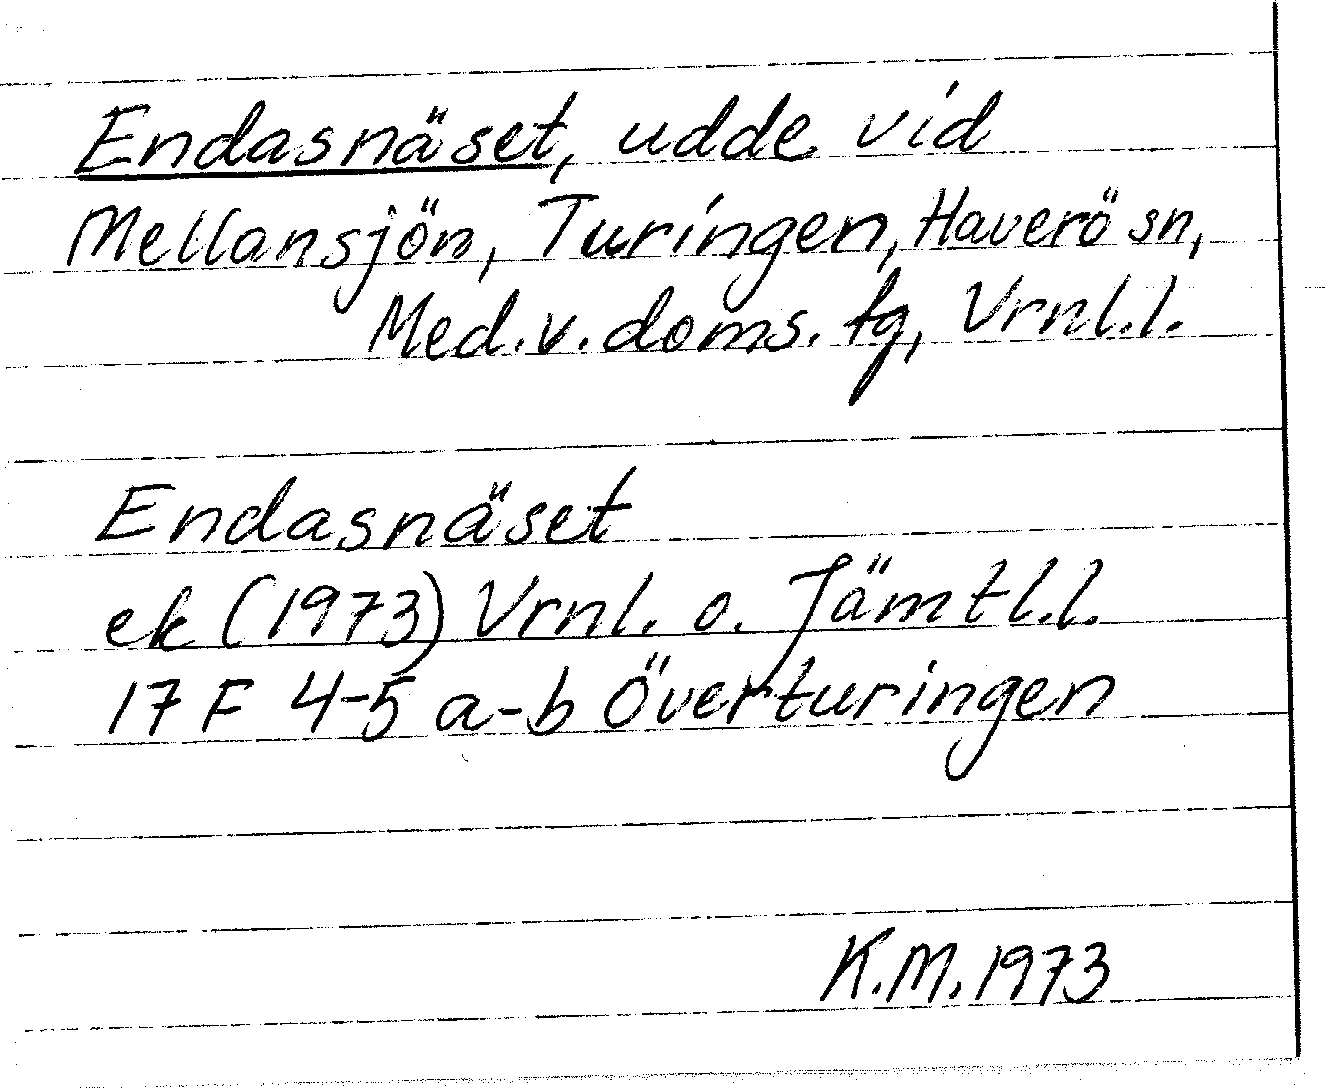 Endasnäset, udde vid
Mellansjön, Turingen, Haverö sn,
Med.v.doms. tg, Vrnl.l.
Endasnäset
ek (1973) Vrnl. o. Jämtl.l.
17 F 4-5 a-b Överturingen
K.M. 1973